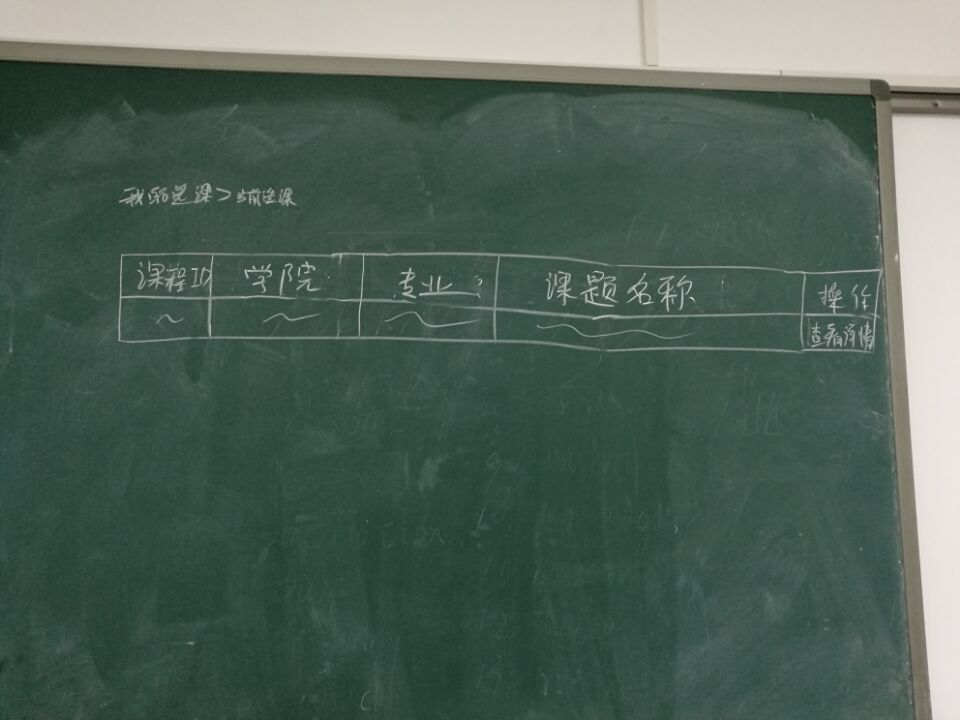 我的选课>当前选课
课程ID 学院 专业 课题名称 操作
~ ~ ~ ~ 查看详情